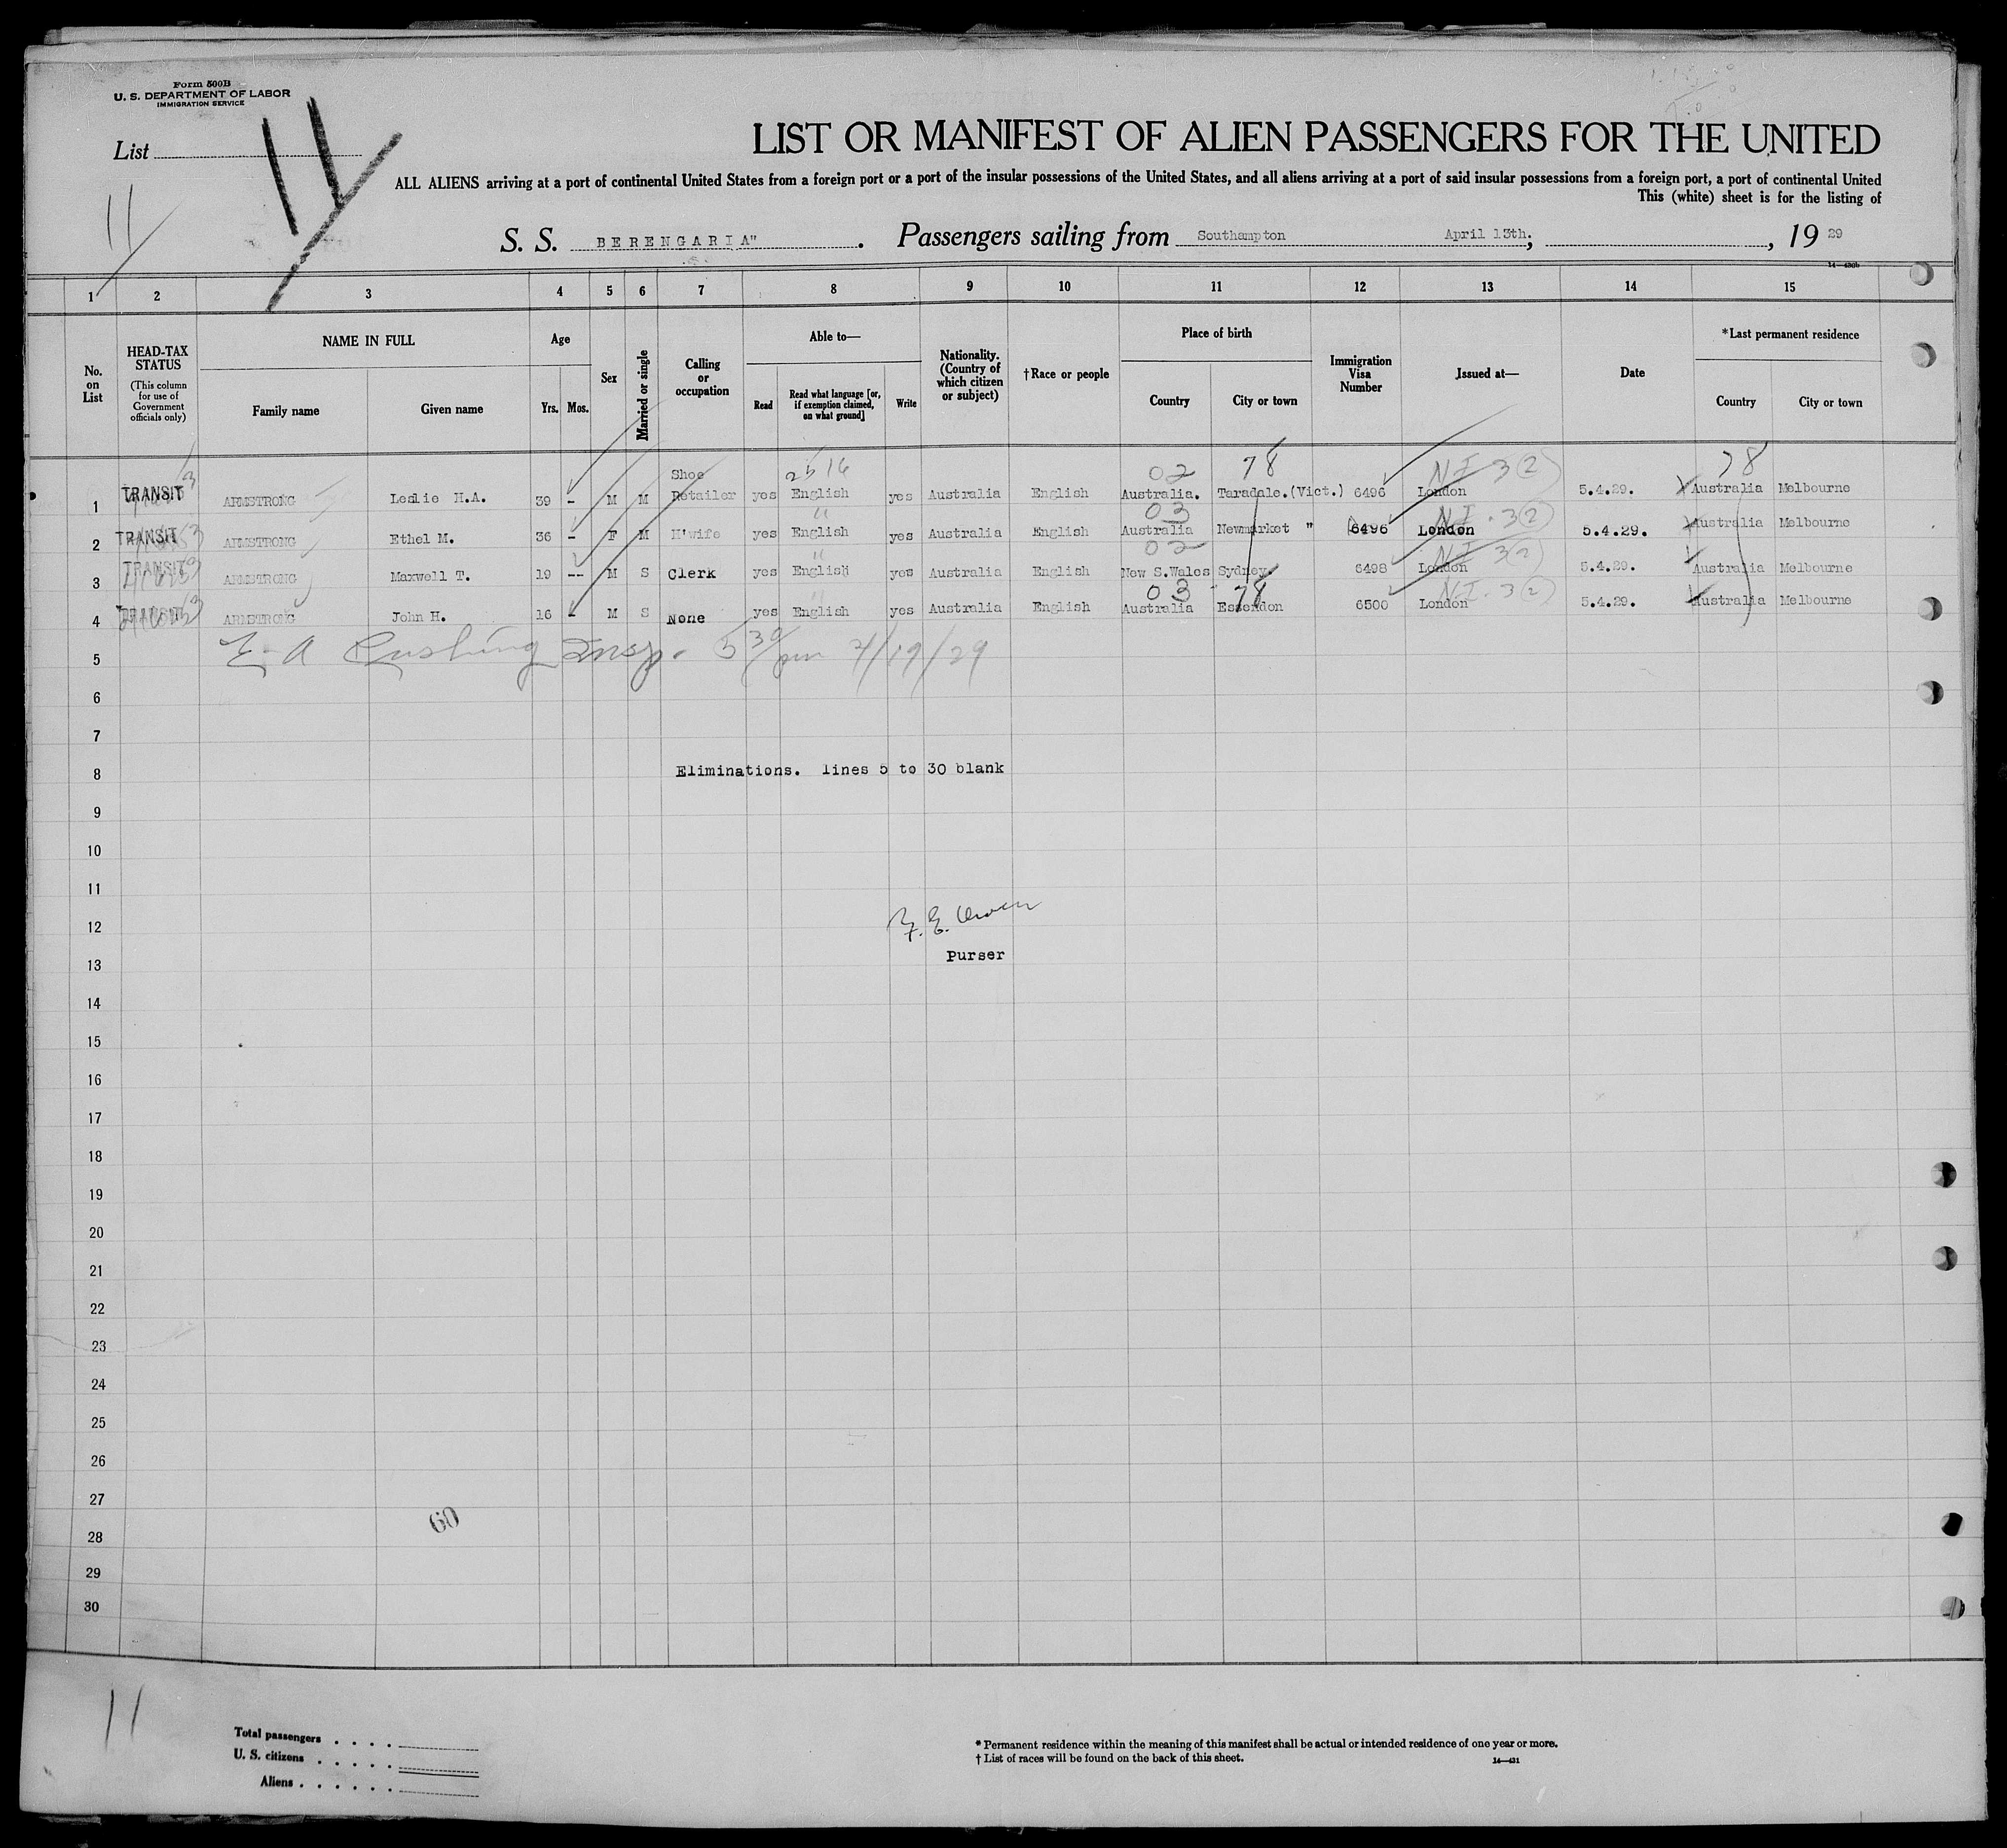 Form 500B
U. S. DEPARTMENT OF LABOR
IMMIGRATION SERVICE
List 11
11
LIST OR MANIFEST OF ALIEN PASSENGERS FOR THE UNITED
ALL ALIENS arriving at a port of continental United States from a foreign port or a port of the insular possessions of the United States, and all aliens arriving at a port of said insular possessions from a foreign port, a port of continental United
This (white) sheet is for the listing of
S. S. BERENGARIA" . Passengers sailing from Southampton April 13th, , 19 29
1 2 3 4 5 6 7 8 9 10 11 12 13 14 15
No. on List
HEAD-TAX STATUS
(This column for use of Government officials only)
NAME IN FULL
Family name Given name
Age
Yrs. Mos.
Sex
Married or single
Calling or occupation
Able to—
Read
Read what language [or, if exemption claimed, on what ground]
Write
Nationality. (Country of which citizen or subject)
†Race or people
Place of birth
Country City or town
Immigration Visa Number
Issued at—
Date
*Last permanent residence
Country City or town
02 78 NI 3 (2) 78
1 TRANSIT ARMSTRONG Leslie H.A. 39 - M M Shoe Retailer yes English yes Australia English Australia. Taradale.(Vict.) 6496 London 5.4.29. Australia Melbourne
03 NI. 3 (2)
2 TRANSIT ARMSTRONG Ethel M. 36 - F M H'wife yes English yes Australia English Australia Newmarket " 6496 London 5.4.29. Australia Melbourne
02 NI 3 (2)
3 TRANSIT ARMSTRONG Maxwell T. 19 -- M S Clerk yes English yes Australia English New S.Wales Sydney. 6498 London 5.4.29. Australia Melbourne
03 78 NI. 3 (2)
4 TRANSIT ARMSTRONG John H. 16 - M S None yes English yes Australia English Australia Essendon 6500 London 5.4.29. Australia Melbourne
5 E. A Cushing Insp. 5 30/pm 4/19/29
6
7
8 Eliminations. lines 5 to 30 blank
9
10
11
12 F. E. Owen
13 Purser
14
15
16
17
18
19
20
21
22
23
24
25
26
27
28 60
29
30
11
Total passengers . . . .
U. S. citizens . . . . .
Aliens . . . . . .
* Permanent residence within the meaning of this manifest shall be actual or intended residence of one year or more.
† List of races will be found on the back of this sheet.
14—431